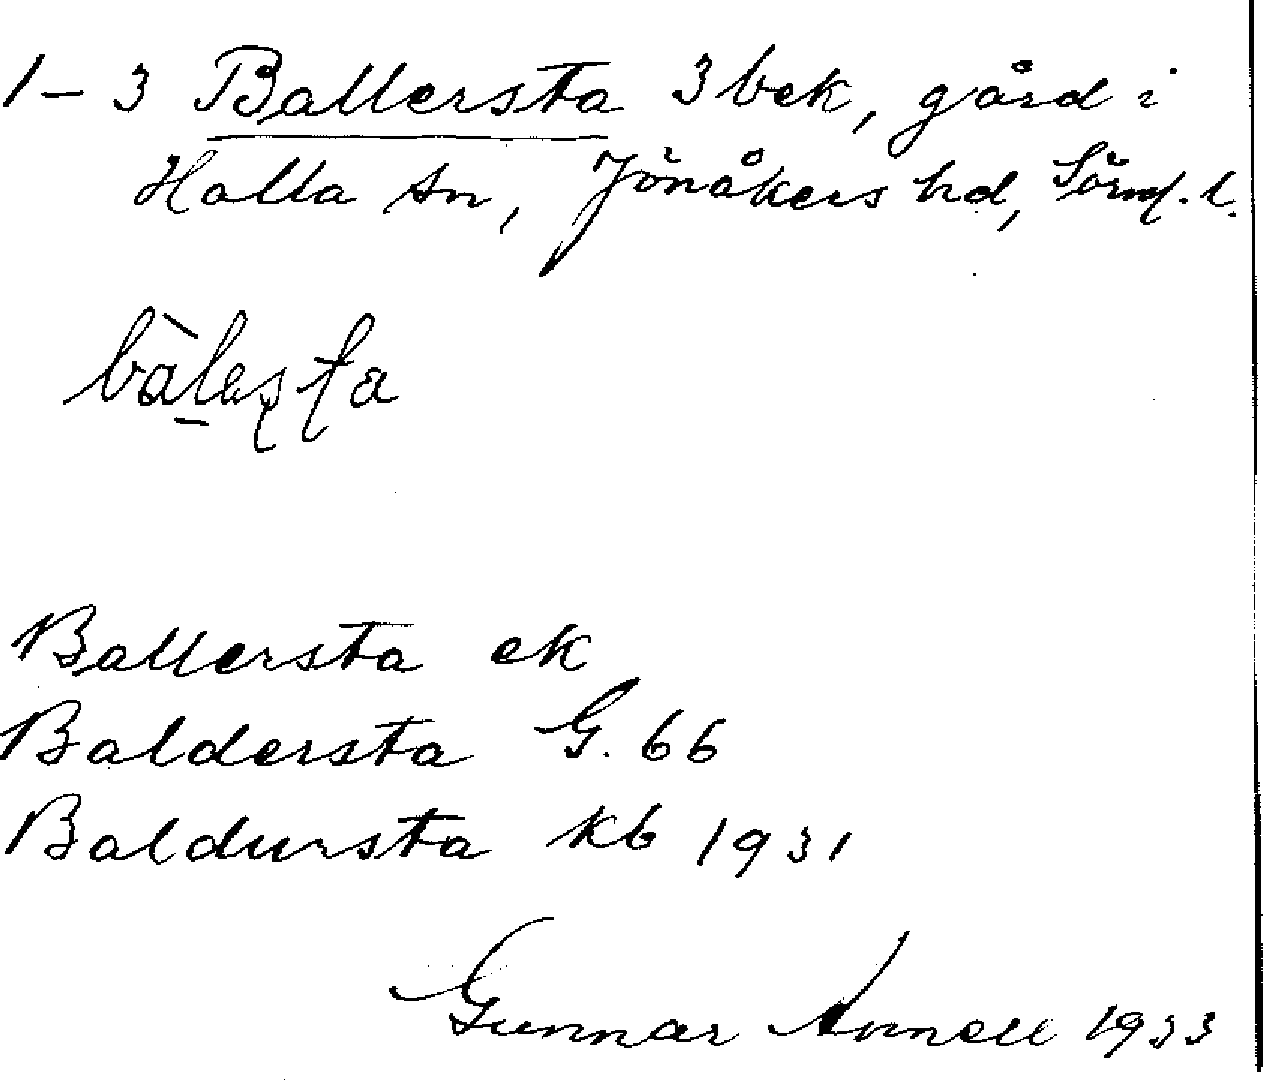 1-3 Ballersta 3 bek, gård i
Halla sn, Jönåkers hd, Sörml. l.
Ballersta ek
Baldersta G. 66
Baldursta kb 1931
Gunnar Annell 1933